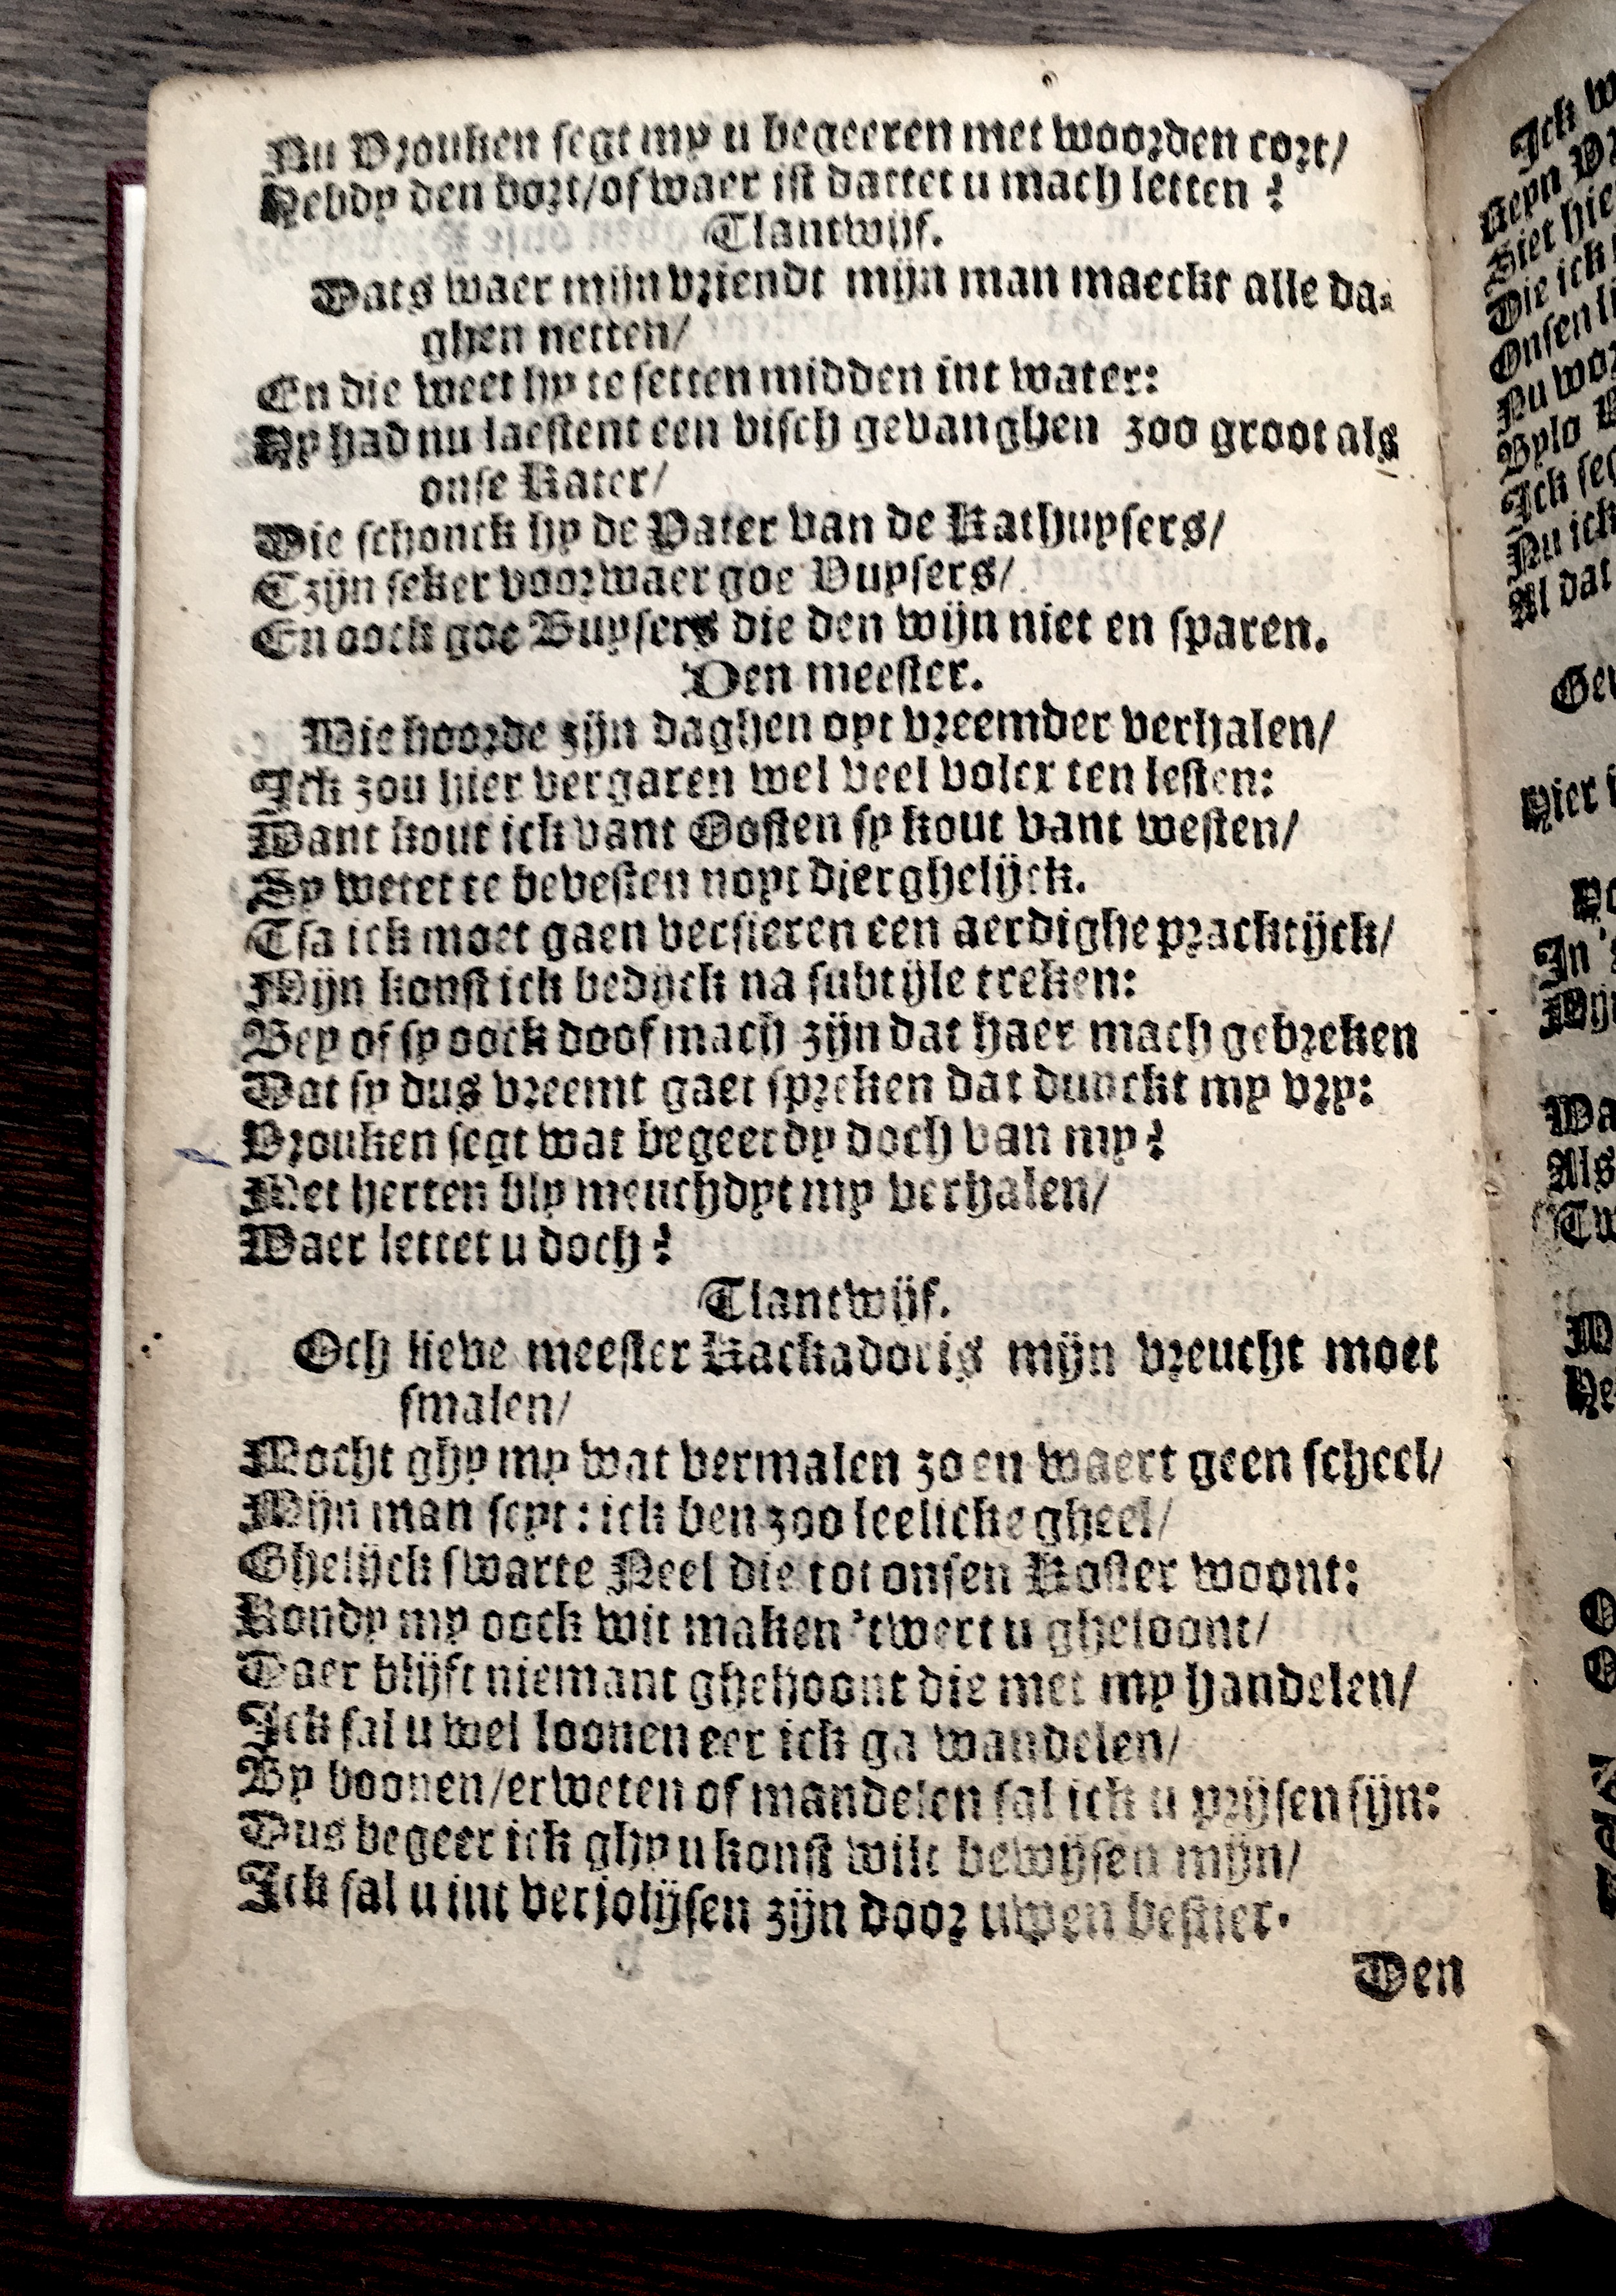 Nu Vrouken segt my u begeeren met woorden cort/
Hebdy den dort/of waer ist dattet u mach letten?
Tlantwijf.
Dats waer mijn vriendt mijn man maeckt alle da-
ghen netten/
En die weet hy te setten midden int water:
Hy had nu laestent een visch gevanghen zoo groot als
onse Kater/
Die schonck hy de Pater van de Kathuysers/
Tzijn seker voorwaer goe Vuysers/
En oock goe Buysers die den wijn niet en sparen.
Den meester.
Wie hoorde zijn daghen oyt vreemder verhalen/
Ick zou hier vergaren wel veel volcx ten lesten:
Want kout ick vant Oosten sy kout vant westen/
Sy wetet te bevesten noyt dierghelijck.
Tsa ick moet gaen versieren een aerdighe pracktijck/
Mijn konst ick bedijck na subtijle treken:
Bey of sy oock doof mach zijn dat haer mach gebreken
Dat sy dus vreemt gaet spreken dat dunckt my vry:
Vrouken segt wat begeerdy doch van my?
Met herten bly meuchdyt my verhalen/
Waer lettet u doch?
Tlantwijf.
Och lieve meester Kackadoris mijn vreucht moet
smalen/
Mocht ghy my wat vermalen zo en waert geen scheel/
Mijn man seyt: ick ben zoo leelicke gheel/
Ghelijck swarte Neel die tot onsen Koster woont:
Kondy my oock wit maken 'twert u gheloont/
Daer blijft niemant ghehoont die met my handelen/
Ick sal u wel loonen eer ick ga wandelen/
By boonen/erweten of mandelen sal ick u prijsen sijn:
Dus begeer ick ghy u konst wilt bewijsen mijn/
Ick sal u int verjolijsen zijn door uwen bestier.
Den